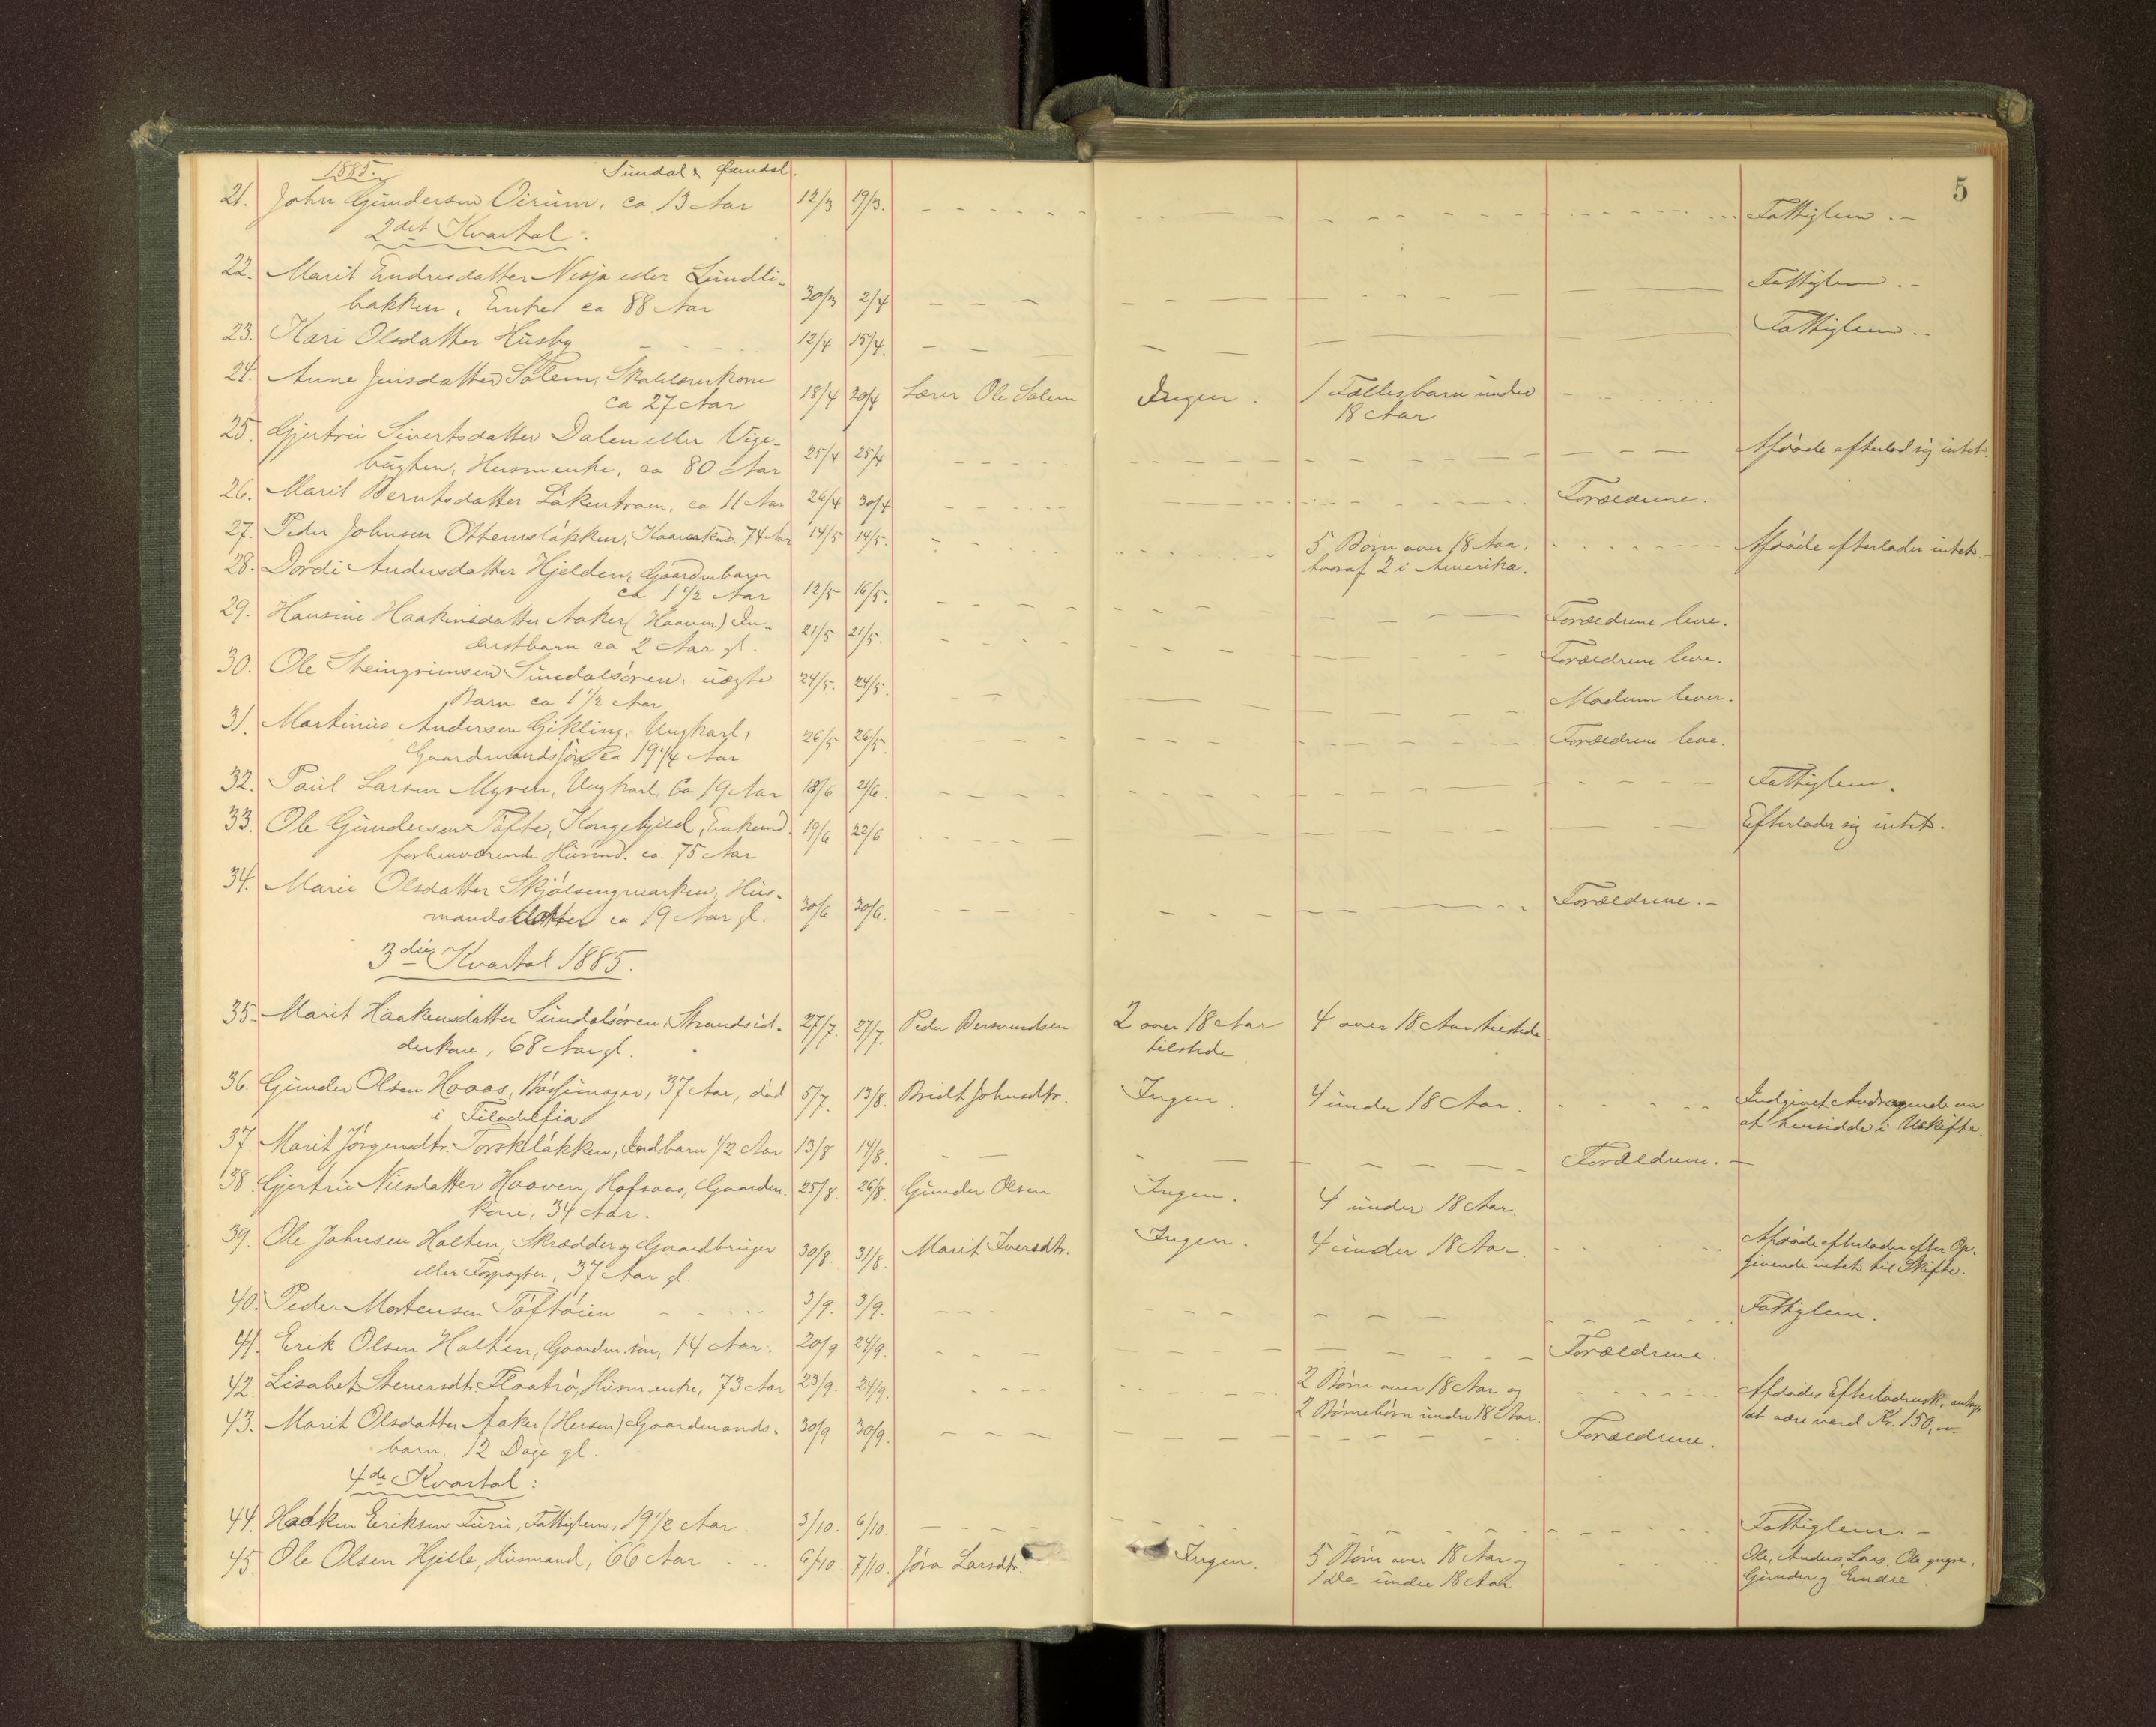 1885. Sündal & 
5
21. John Gündersen Oirüm, ca 13 Aar 12/3 19/3. Fattiglem.-
2det Kvartal.
22. Marit Endresdatter Nisja eller Lündli-
bakken, Enke ca 88 Aar 30/3 2/4 Fattiglem.-
23. Kari Olsdatter Hüsby 12/4 15/4. Fattiglem.-
24. Anne Jensdatter Solem, Skolelærerkone
ca 27 Aar 18/4 20/4 Lærer Ole Solem Ingen. 1 Fællesbarn ünder
18 Aar
25. Gjertrü Sivertsdatter Dalen eller Vige-
bügten, Husmenke, ca 80 Aar 25/4 25/4 Afdøde efterlod sig intet.
26. Marit Berntsdatter Løkentrøen, ca 11 Aar 26/4 30/4 Forældrene.
27. Peder Johnsen Ottemsløkken, 74 Aar 14/5 14/5. 5 Børn over 18 Aar, Afdøde efterlader intet.-
hvoraf 2 i Amerika.
28. Dordi Andersdatter Hjelden, Gaardmbarn
ca 1 1/2 Aar 12/5 16/5. Forældrene leve.
29. Hansine Haakensdatter Aaker (Haaven) In-
derstbarn ca 2 Aar gl. 21/5 21/5. Forældrene leve.
30. Ole Steingrimsen Sündalsøren, üægte
Barn ca 1 1/2 Aar 24/5. 24/5. Moderen lever.
31. Martinius Andersen Gikling, Ungkarl,
Gaardmandssøn ca 19 1/4 Aar 26/5 26/5. Forældrene leve.
32. Paul Larsen Myren, Ungkarl, Ca 19 Aar 18/6 21/6. Fattiglem.
33. Ole Gündersen Tøfte, Kongskjeld, Enkemd. 19/6 22/6 Efterlader sig intet.
forhenværende Hüsmd. ca. 75 Aar
34. Marie Olsdatter Skjølsengmarken, Hüs-
mandsdatter ca 19 Aar gl. 30/6 30/6. Forældrene.-
3die Kvartal 1885.
35. Marit Haakensdatter Sündalsøren, Strandsid- 27/7. 27/7. Peder Bersvendsen 2 over 18 Aar 4 over 18 Aar tilstede
derkone, 68 Aar gl. tilstede
36. Günder Olsen Hoaas, Bøssemager, 37 Aar, død 5/7. 13/8. Bridt Johnsdtr. Ingen. 4 ünder 18 Aar. Indgivet Andragende om
i Filadelfia at hensidde i Uskifte.
37. Marit Jørgensdtr. Torskeløkken, Indbarn 1/2 Aar 13/8 14/8. Forældrene.-
38. Gjertrü Nilsdatter Haaven, Hafsaas, Gaardm. 25/8. 26/8. Günder Olsen Ingen. 4 ünder 18 Aar.
kone, 34 Aar.
39. Ole Johnsen Holten, Skrædder og Gaardbrüger 30/8. 31/8. Marit Iversdtr. Ingen. 4 ünder 18 Aar Afdøde efterlader efter Op-
eller Forpagter, 37 Aar gl. givende intet til Skifte.
40. Peder Mortensen Tøftøien 3/9. 3/9. Fattiglem.
41. Erik Olsen Holten, Gaardm. søn, 14 Aar. 20/9 24/9. Forældrene
42. Lisabet Stenersdt. Flaatrø, Hüsm. enke, 73 Aar 23/9. 24/9. 2 Børn over 18 Aar og Afdødes Efterladensk. antag.
2 Børnebørn ünder 18 Aar. at være værd Kr. 150,
43. Marit Olsdatter Aaker (Hersen) Gaardmands- 30/9 30/9. Forældrene.
barn, 12 Dage gl.
4de Kvartal:
44. Haaken Eriksen Fürü, Fattiglem, 19 1/2 Aar 3/10. 6/10. Fattiglem.-
45. Ole Olsen Hjelle, Hüsmand, 66 Aar 6/10 7/10. Jøra Larsdtr. Ingen. 5 Børn over 18 Aar og Ole, Anders, Lars, Ole yngre,
1 Do ünder 18 Aar. Günder og Endre.